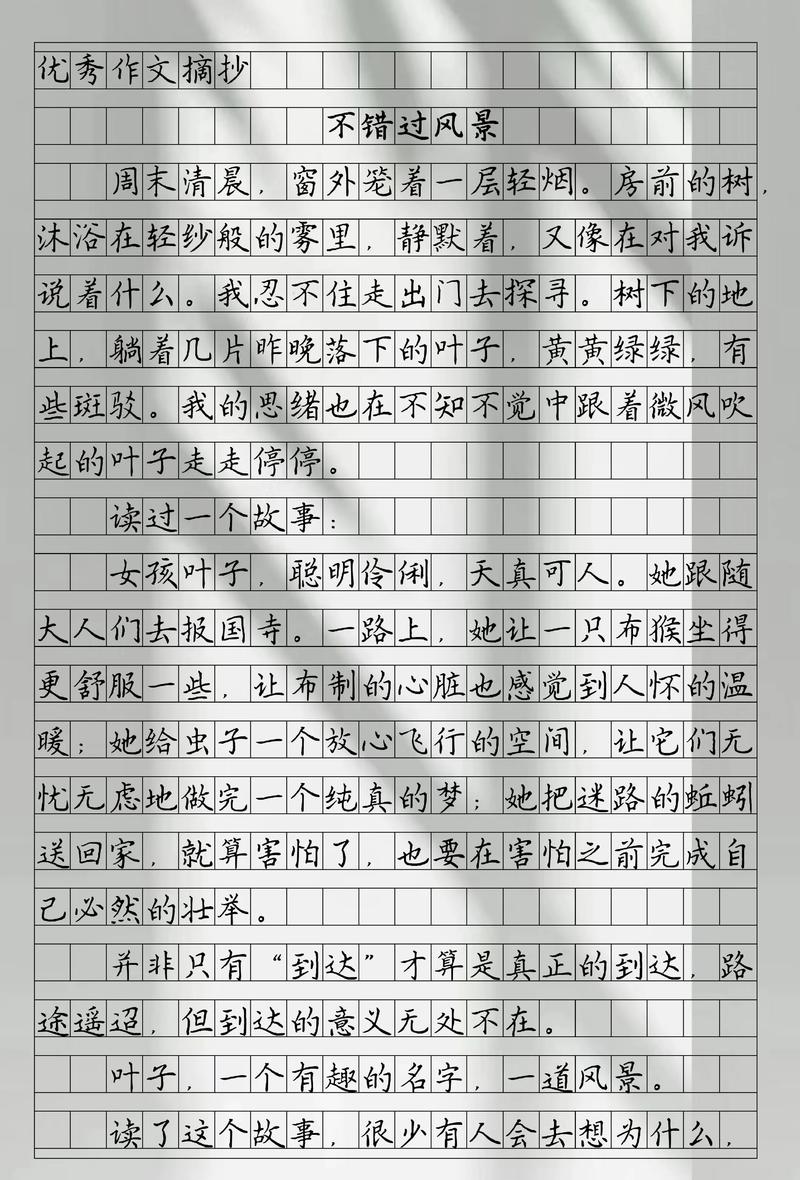 优秀作文摘抄
不错过风景
周末清晨，窗外笼着一层轻烟。房前的树，
沐浴在轻纱般的雾里，静默着，又像在对我诉
说着什么。我忍不住走出门去探寻。树下的地
上，躺着几片昨晚落下的叶子，黄黄绿绿，有
些斑驳。我的思绪也在不知不觉中跟着微风吹
起的叶子走走停停。
读过一个故事：
女孩叶子，聪明伶俐，天真可人。她跟随
大人们去报国寺。一路上，她让一只布猴坐得
更舒服一些，让布制的心脏也感觉到人怀的温
暖；她给虫子一个放心飞行的空间，让它们无
忧无虑地做完一个纯真的梦；她把迷路的蚯蚓
送回家，就算害怕了，也要在害怕之前完成自
己必然的壮举。
并非只有“到达”才算是真正的到达，路
途遥迢，但到达的意义无处不在。
叶子，一个有趣的名字，一道风景。
读了这个故事，很少有人会去想为什么，